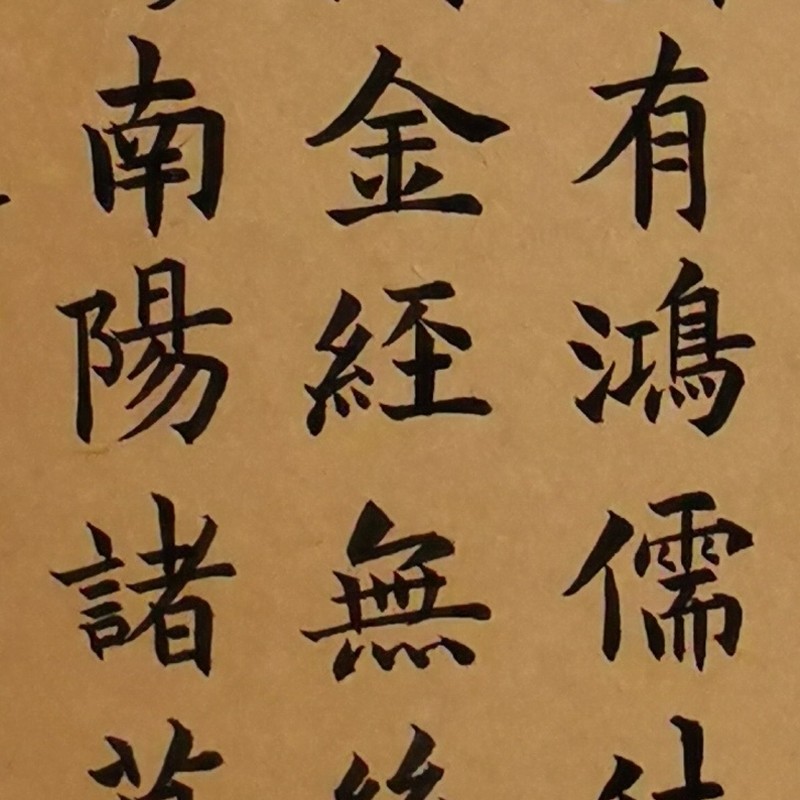 有鴻儒
金經無
南陽諸